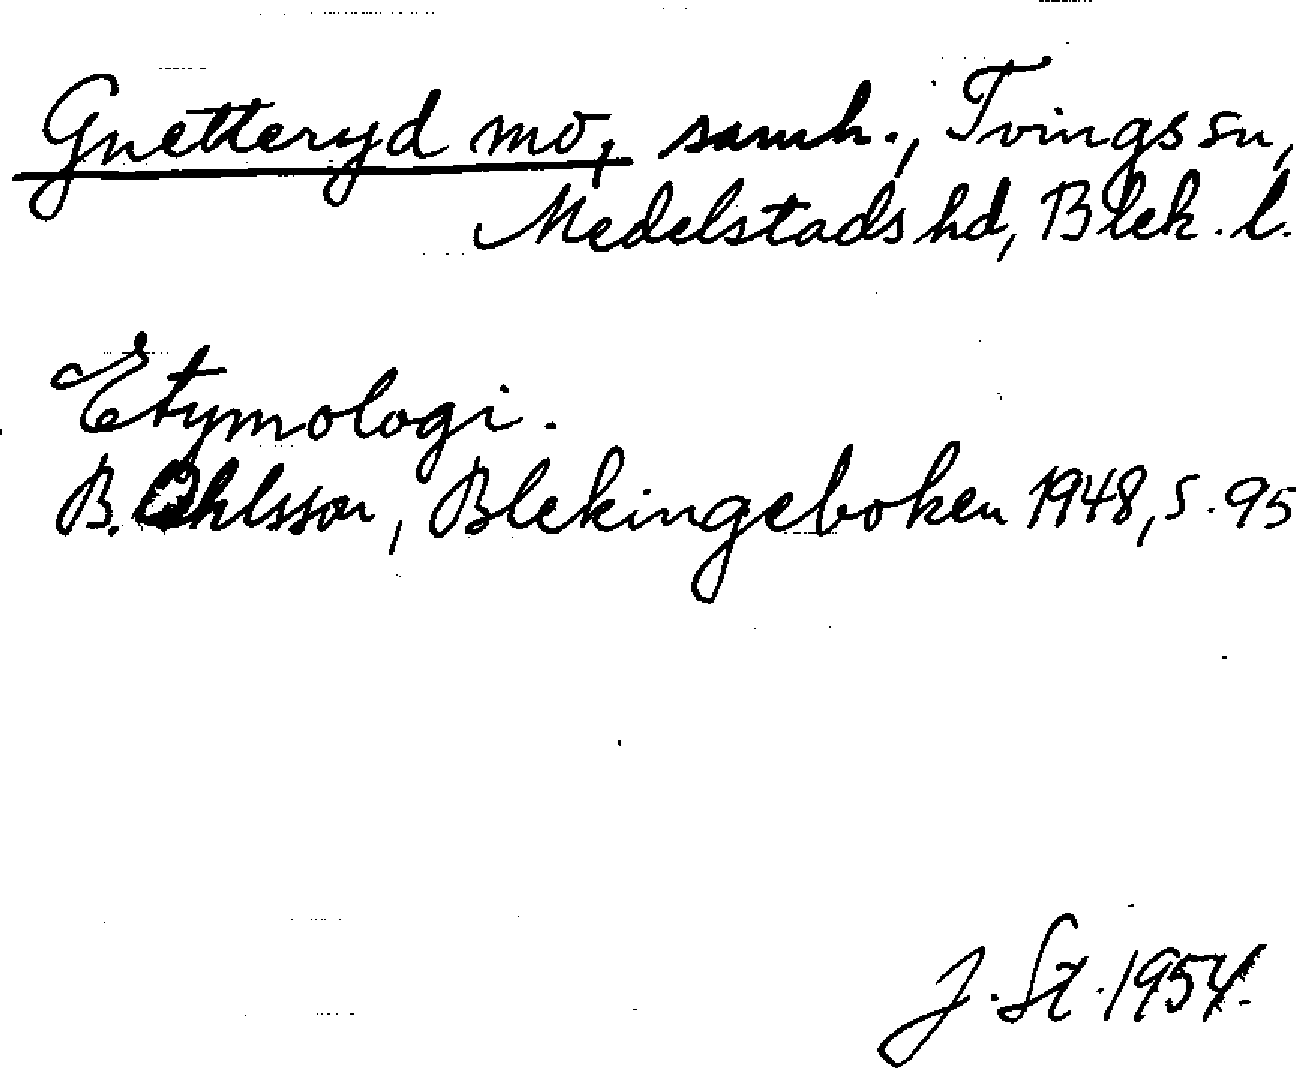 Gnetteryd mo, samh., Tvings sn,
Medelstads hd, Blek. l.
Etymologi.
B. Ohlsson, Blekingeboken 1948, s. 95
J. St. 1954.